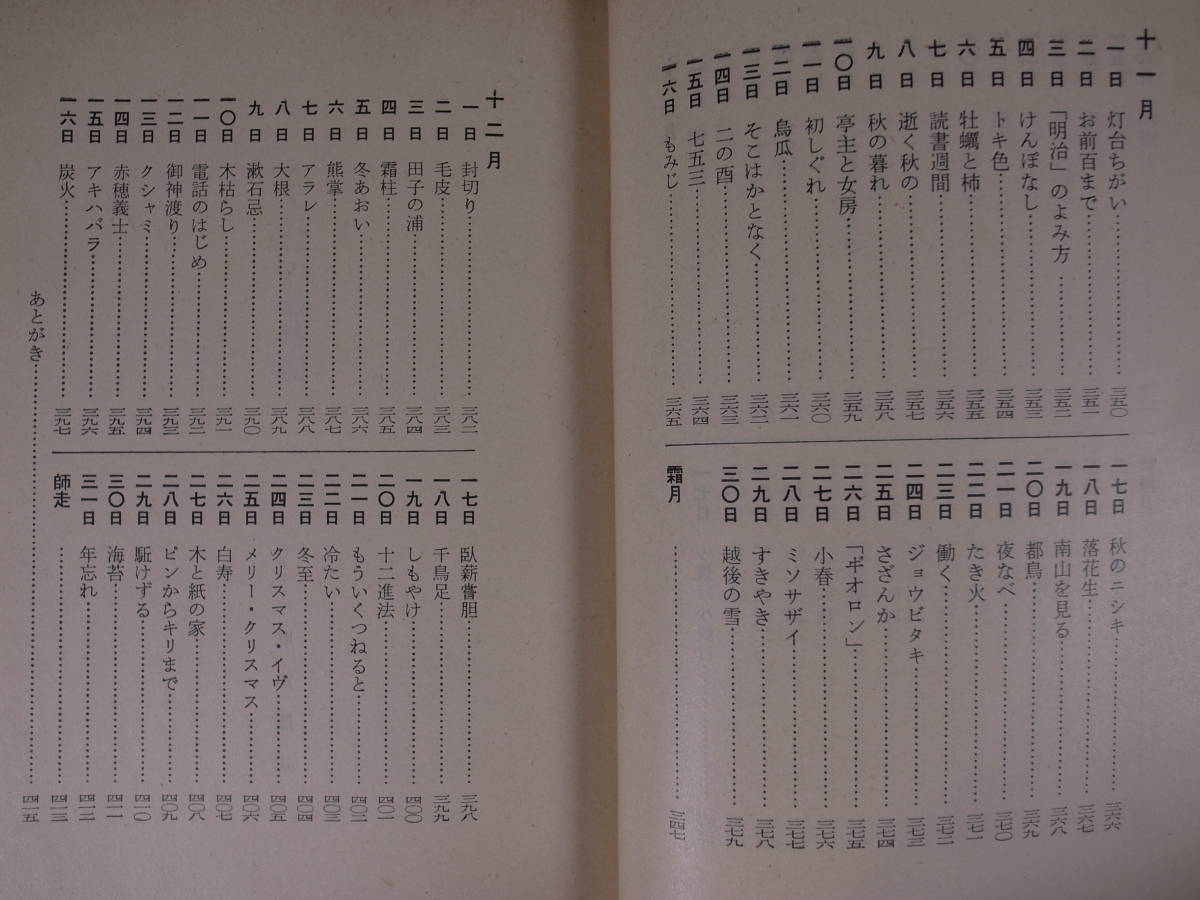 十一月
一日 灯台ちがい…………三五〇
二日 お前百まで…………三五一
三日 「明治」のよみ方…………三五二
四日 けんぽなし…………三五三
五日 トキ色…………三五四
六日 牡蠣と柿…………三五五
七日 読書週間…………三五六
八日 逝く秋の…………三五七
九日 秋の暮れ…………三五八
一〇日 亭主と女房…………三五九
一一日 初しぐれ…………三六〇
一二日 烏瓜…………三六一
一三日 そこはかとなく…………三六二
一四日 二の酉…………三六三
一五日 七五三…………三六四
一六日 もみじ…………三六五
一七日 秋のニシキ…………三六六
一八日 落花生…………三六七
一九日 南山を見る…………三六八
二〇日 都鳥…………三六九
二一日 夜なべ…………三七〇
二二日 たき火…………三七一
二三日 働く…………三七二
二四日 ジョウビタキ…………三七三
二五日 さざんか…………三七四
二六日 「ギオロン」…………三七五
二七日 小春…………三七六
二八日 ミソサザイ…………三七七
二九日 すきやき…………三七八
三〇日 越後の雪…………三七九
霜月…………三四七
十二月
一日 封切り…………三八二
二日 毛皮…………三八三
三日 田子の浦…………三八四
四日 霜柱…………三八五
五日 冬あおい…………三八六
六日 熊掌…………三八七
七日 アラレ…………三八八
八日 大根…………三八九
九日 漱石忌…………三九〇
一〇日 木枯らし…………三九一
一一日 電話のはじめ…………三九二
一二日 御神渡り…………三九三
一三日 クシャミ…………三九四
一四日 赤穂義士…………三九五
一五日 アキハバラ…………三九六
一六日 炭火…………三九七
一七日 臥薪嘗胆…………三九八
一八日 千鳥足…………三九九
一九日 しもやけ…………四〇〇
二〇日 十二進法…………四〇一
二一日 もういくつねると…………四〇二
二二日 冷たい…………四〇三
二三日 冬至…………四〇四
二四日 クリスマス・イヴ…………四〇五
二五日 メリー・クリスマス…………四〇六
二六日 白寿…………四〇七
二七日 木と紙の家…………四〇八
二八日 ピンからキリまで…………四〇九
二九日 駈けずる…………四一〇
三〇日 海苔…………四一一
三一日 年忘れ…………四一二
師走…………四一三
あとがき…………四一五